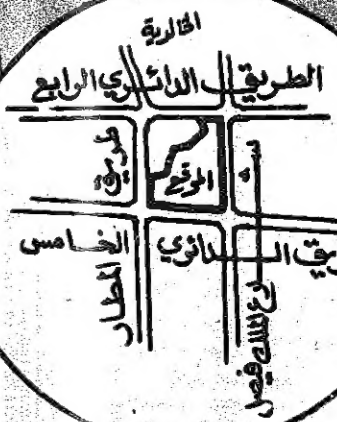 الخالدية
الطريق الدائري الرابع
طريق
الموقع
الخامس
يق الدائري
المطار
شارع الملك فيصل